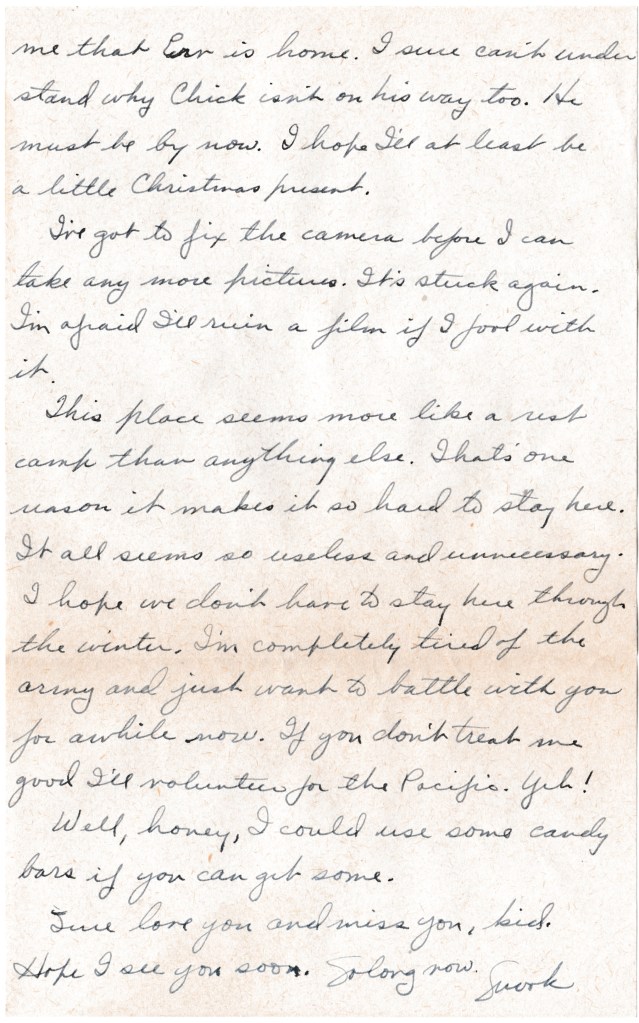 me that Erv is home. I sure can't under
stand why Chick isn't on his way too. He
must be by now. I hope I'll at least be
a little Christmas present.
I've got to fix the camera before I can
take any more pictures. It's stuck again.
I'm afraid I'll ruin a film if I fool with
it.
This place seems more like a rest
camp than anything else. That's one
reason it makes it so hard to stay here.
It all seems so useless and unnecessary.
I hope we don't have to stay here through
the winter. I'm completely tired of the
army and just want to battle with you
for awhile now. If you don't treat me
good I'll volunteer for the Pacific. Yeh!
Well, honey, I could use some candy
bars if you can get some.
Sure love you and miss you, kid.
Hope I see you soon. So long now.